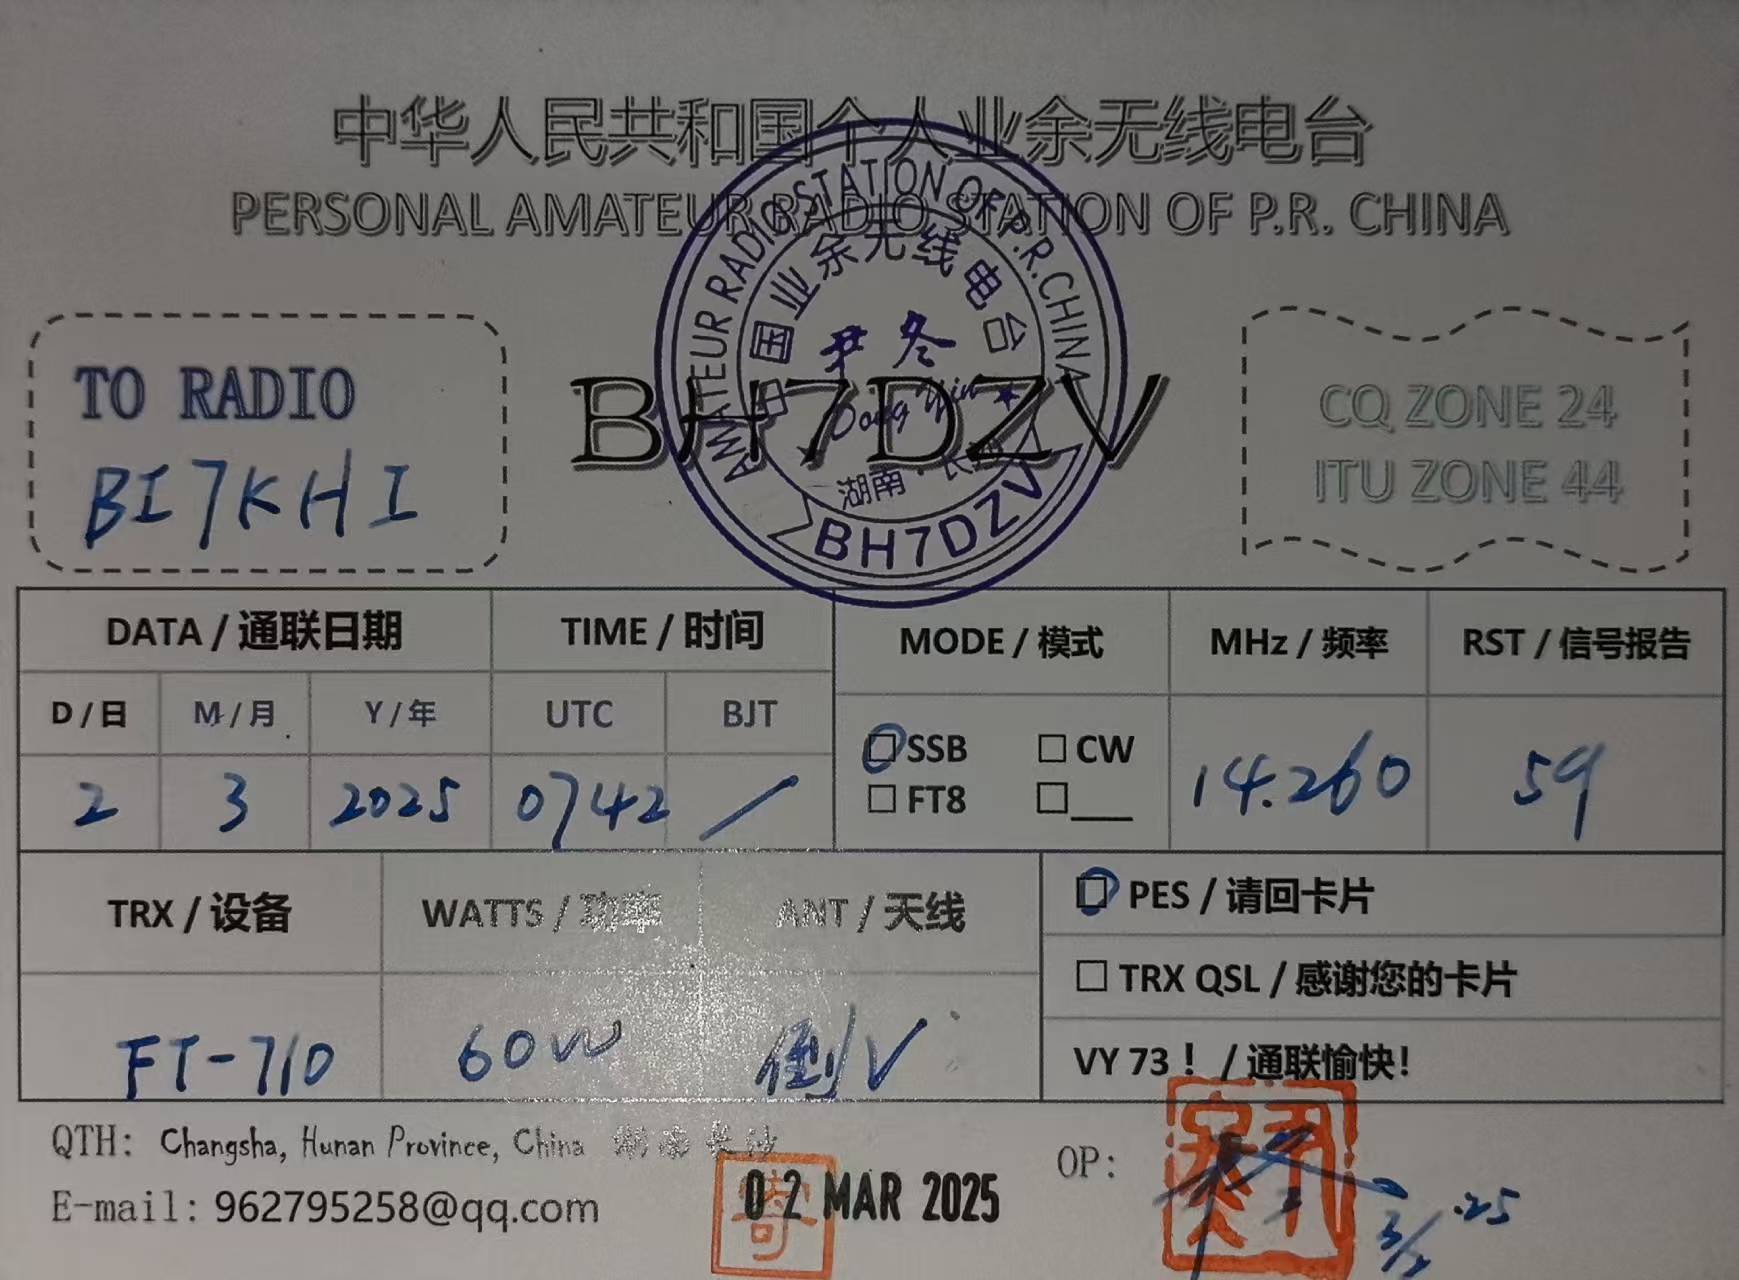 中华人民共和国个人业余无线电台
PERSONAL AMATEUR RADIO STATION OF P.R. CHINA
AMATEUR RADIO STATION OF P.R.CHINA
中国业余无线电台
尹冬
Dong Yin
湖南·长沙
BH7DZV
TO RADIO
BI7KHI
BH7DZV
CQ ZONE 24
ITU ZONE 44
DATA / 通联日期 TIME / 时间 MODE / 模式 MHz / 频率 RST / 信号报告
D / 日 M / 月 Y / 年 UTC BJT
☐ SSB ☐ CW
☐ FT8 ☐___
2 3 2025 0742 / 14.260 59
TRX / 设备 WATTS / 功率 ANT / 天线
FT-710 60W 倒V
☐ PES / 请回卡片
☐ TRX QSL / 感谢您的卡片
VY 73！ / 通联愉快!
QTH: Changsha, Hunan Province, China 湖南长沙
E-mail: 962795258@qq.com
寄
02 MAR 2025
OP:
.25